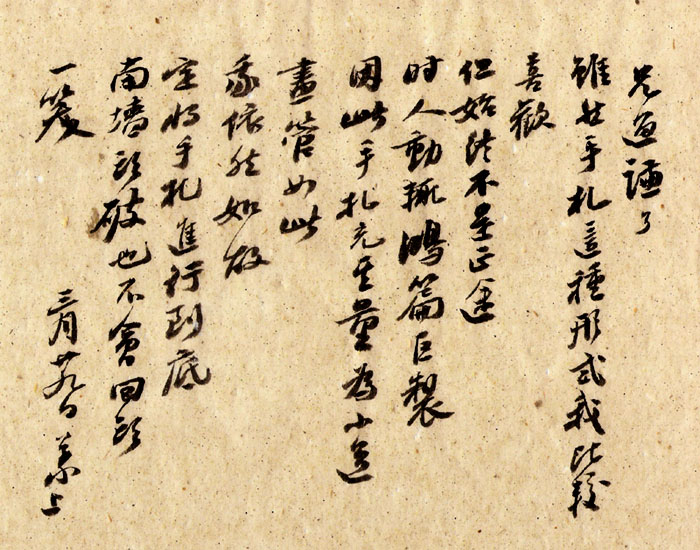 兄過謙了
雖手札這種形式我比較
喜歡
但始終不是正途
時人動輒鴻篇巨製
因此手札充其量為小道
盡管如此
我依然如故
定將手札進行到底
南墻頭破也不會回頭
一笑
三月廿九日 上